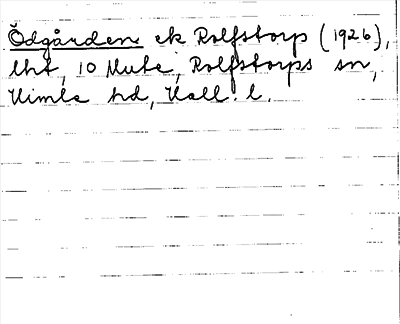 Ödgården ek Rolfstorp (1926),
lht, 10 Mute, Rolfstorps sn,
Himle hd, Hall. l.